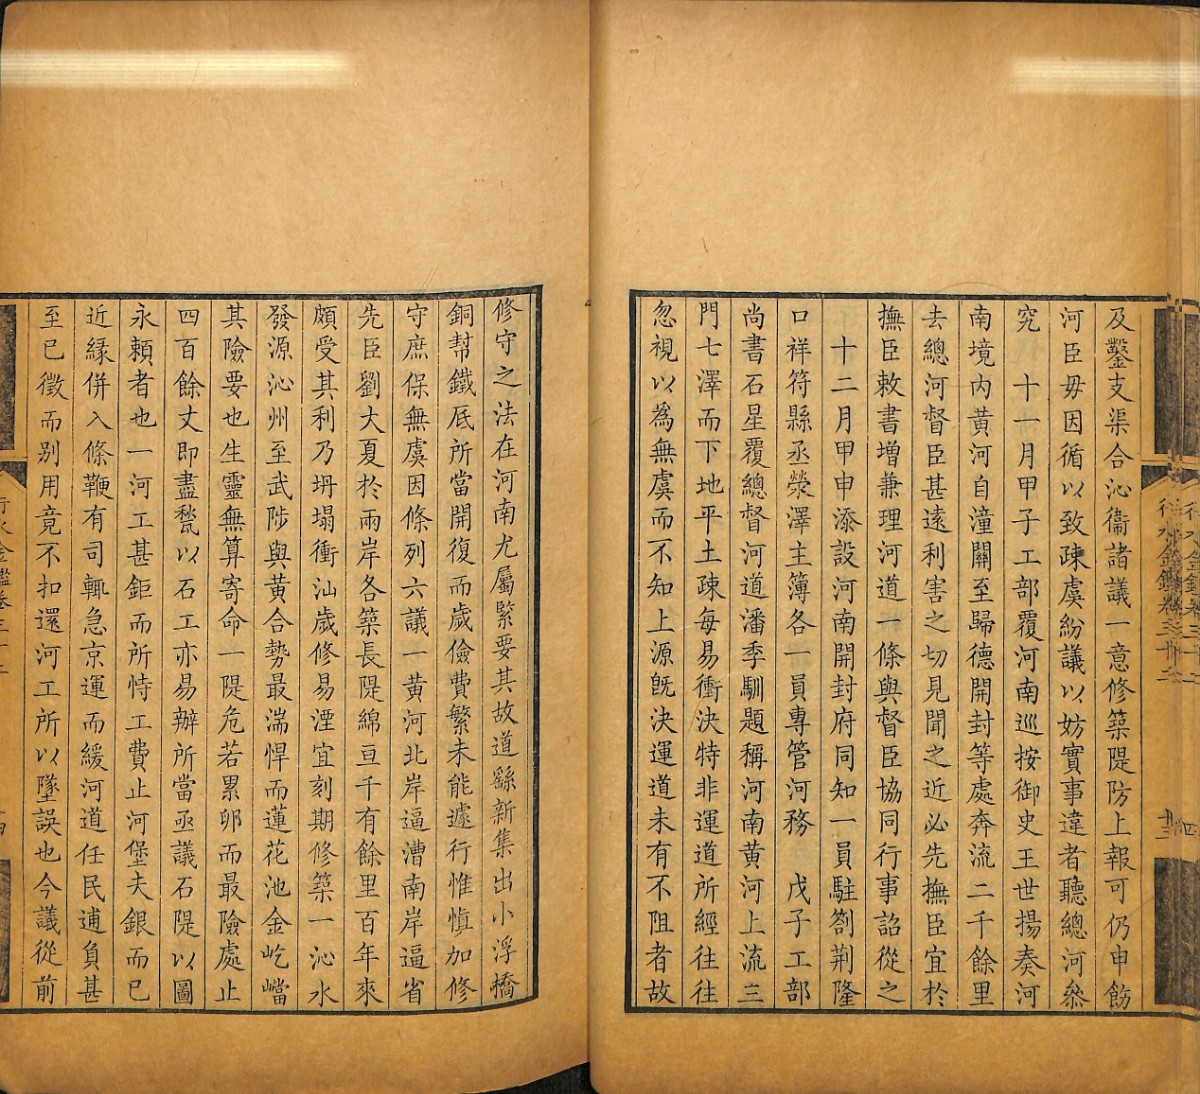 及鑿支渠合沁衞諸議一意修築隄防上報可仍申飭
河臣毋因循以致疎虞紛議以妨實事違者聽總河叅
究　十一月甲子工部覆河南巡按御史王世揚奏河
南境内黄河自潼關至歸德開封等處奔流二千餘里
去總河督臣甚遠利害之切見聞之近必先撫臣宜於
撫臣敕書增兼理河道一條與督臣協同行事詔從之
十二月甲申添設河南開封府同知一員駐劄荆隆
口祥符縣丞滎澤主簿各一員專管河務　戊子工部
尚書石星覆總督河道潘季馴題稱河南黄河上流三
門七澤而下地平土疎每易衝決特非運道所經往往
忽視以爲無虞而不知上源旣決運道未有不阻者故
修守之法在河南尤屬緊要其故道繇新集出小浮橋
銅幇鐵底所當開復而歲儉費繁未能遽行惟愼加修
守庶保無虞因條列六議一黄河北岸逼漕南岸逼省
先臣劉大夏於兩岸各築長隄綿亘千有餘里百年來
頗受其利乃坍塌衝汕歲修易湮宜刻期修築一沁水
發源沁州至武陟與黄合勢最湍悍而蓮花池金屹嵣
其險要也生靈無算寄命一隄危若累卵而最險處止
四百餘丈即盡甃以石工亦易辦所當亟議石隄以圖
永頼者也一河工甚鉅而所恃工費止河堡夫銀而已
近緣併入條鞭有司輒急京運而緩河道任民逋負甚
至已徵而别用竟不扣還河工所以墜誤也今議從前
行水金鑑卷三十二